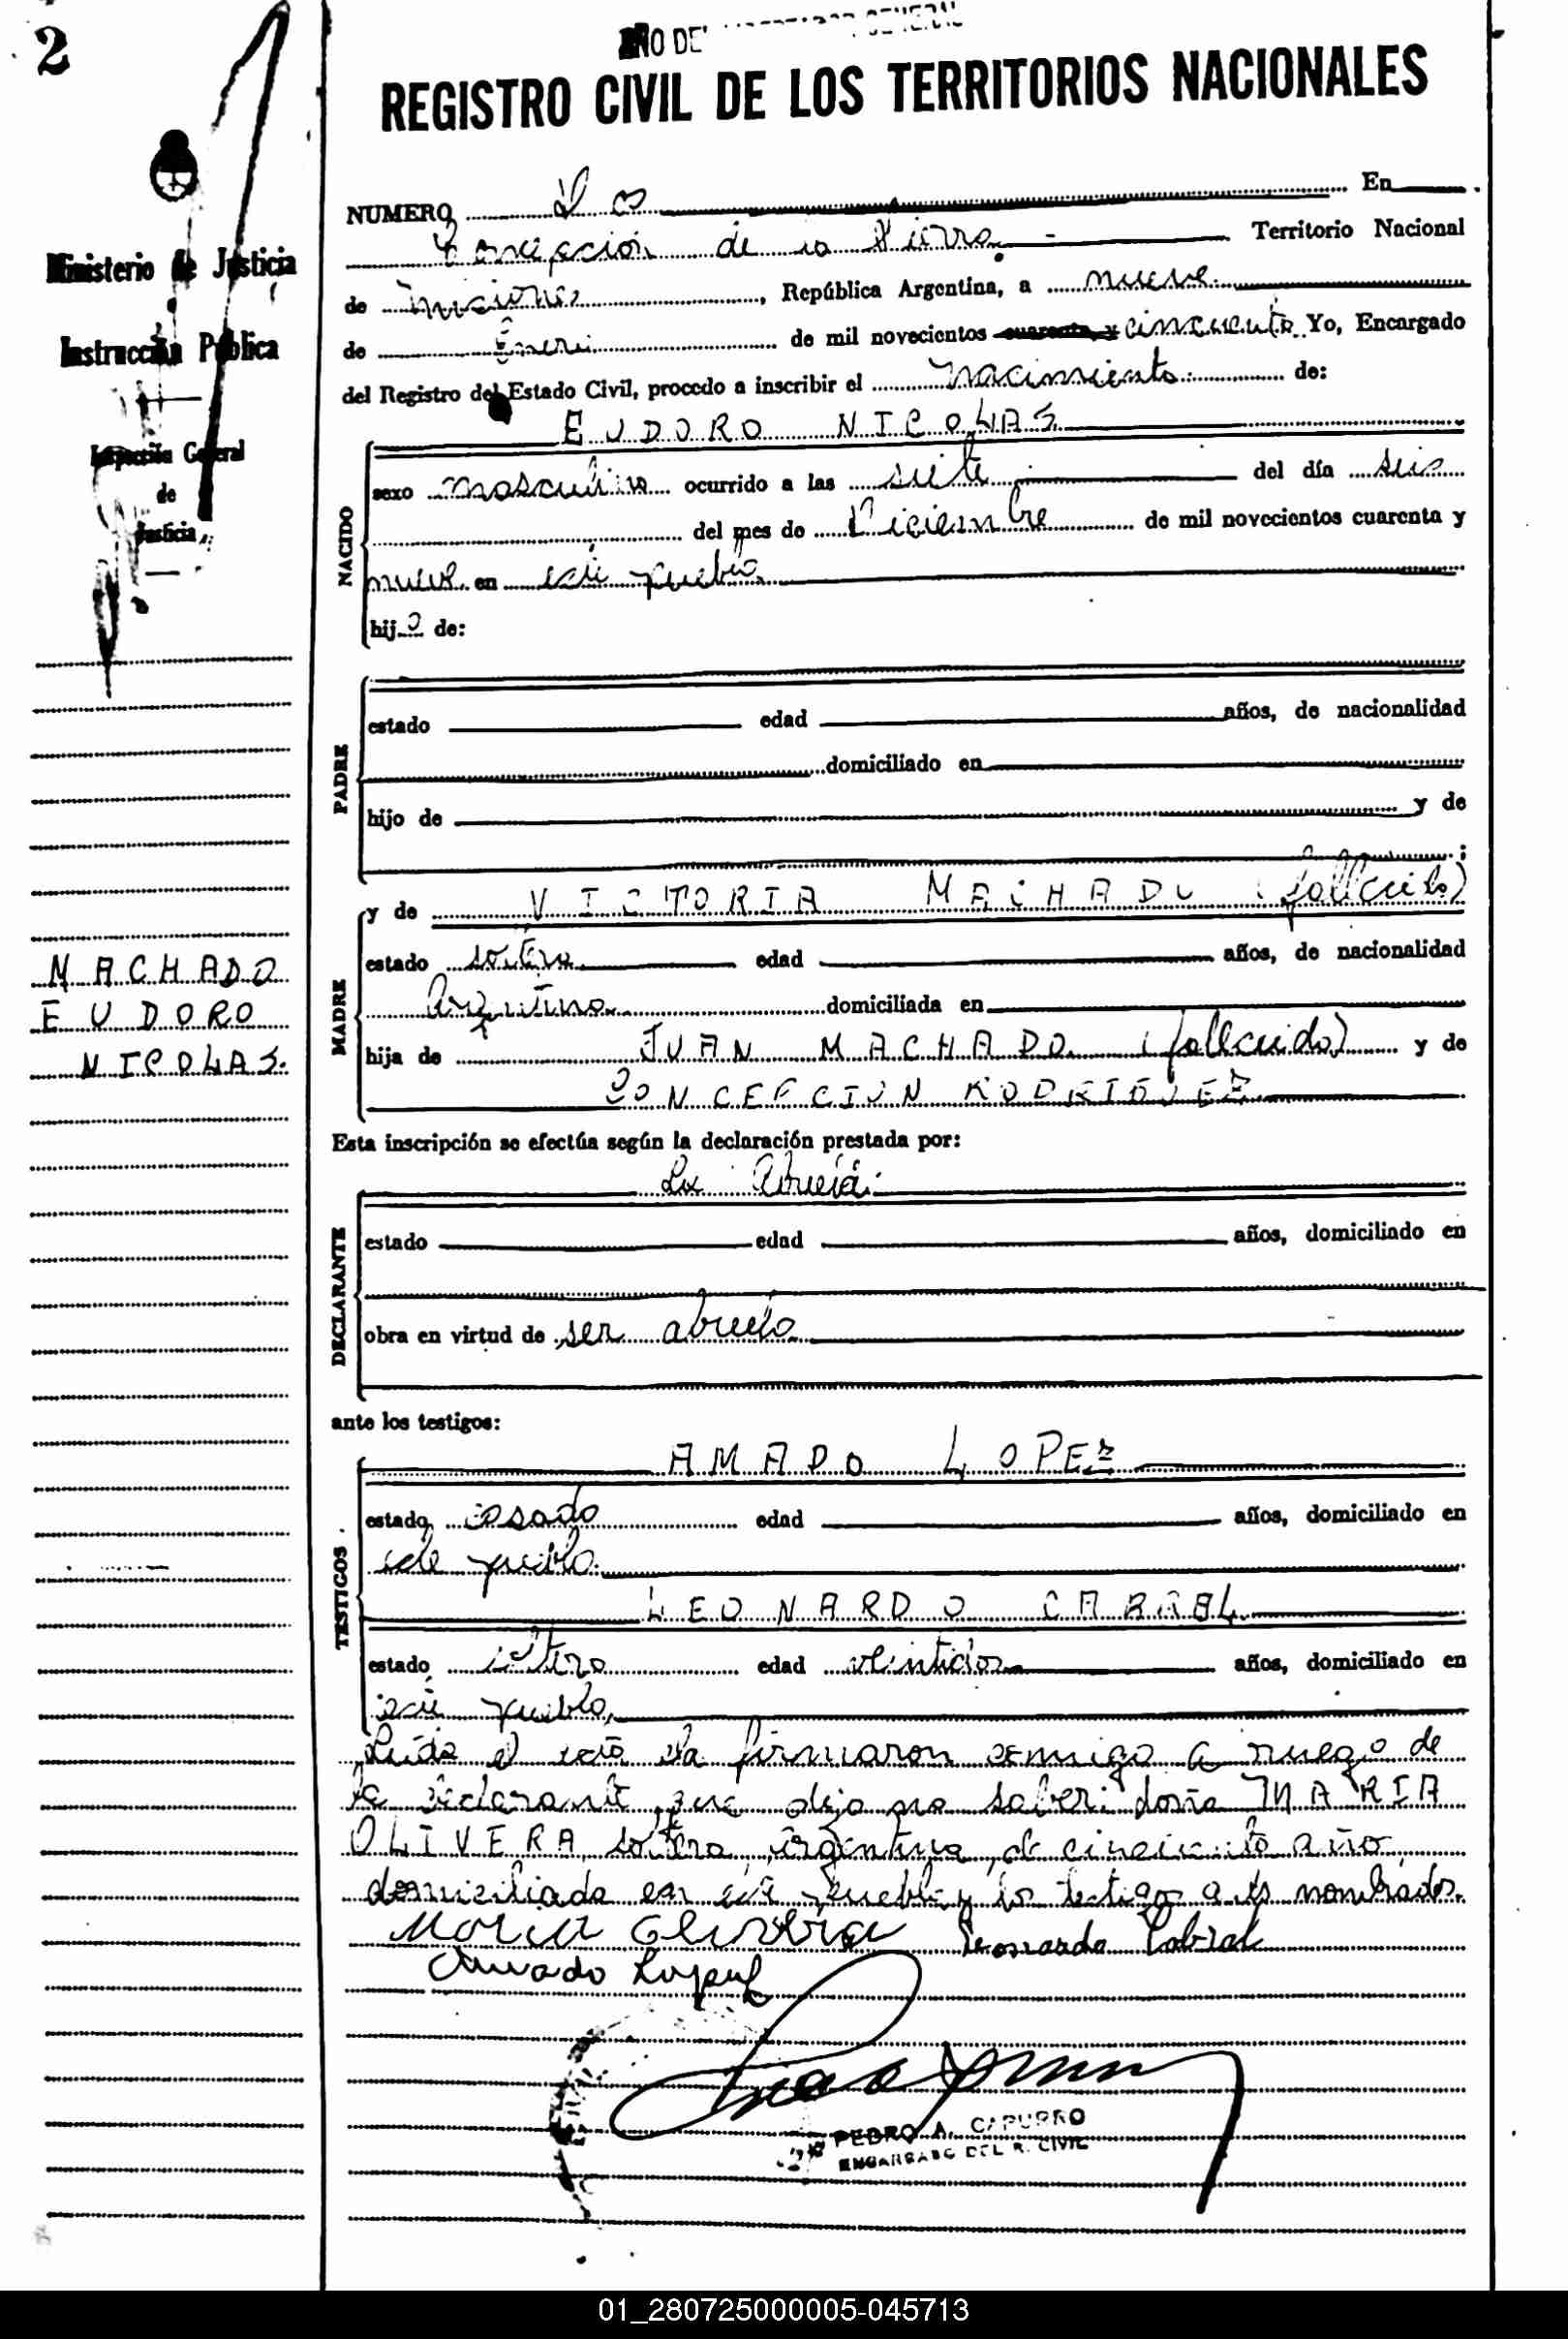 2
AÑO DEL LIBERTADOR GENERAL
REGISTRO CIVIL DE LOS TERRITORIOS NACIONALES
Ministerio de Justicia
Instrucción Pública
Inspección General
de
Justicia
MACHADO
EUDORO
NICOLAS.
NUMERO Dos En
Concepción de la Sierra. Territorio Nacional
de Misiones, República Argentina, a nueve
de Enero de mil novecientos cuarenta y cincuenta Yo, Encargado
del Registro del Estado Civil, procedo a inscribir el nacimiento de:
EUDORO NICOLAS
NACIDO
sexo masculino ocurrido a las siete del día seis
del mes de Diciembre de mil novecientos cuarenta y
nueve en este pueblo
hijo de:
PADRE
estado edad años, de nacionalidad
domiciliado en
hijo de y de
;
MADRE
y de VICTORIA MACHADO (fallecida)
estado soltera edad años, de nacionalidad
Argentina domiciliada en
hija de JUAN MACHADO (fallecido) y de
CONCEPCION RODRIGUEZ
Esta inscripción se efectúa según la declaración prestada por:
DECLARANTE
La Abuela
estado edad años, domiciliado en
obra en virtud de ser abuela
ante los testigos:
TESTIGOS
AMADO LOPEZ
estado casado edad años, domiciliado en
este pueblo
LEONARDO CABRAL
estado soltero edad veintidos años, domiciliado en
este pueblo,
Leida el acta la firmaron conmigo a ruego de
la declarante, que dijo no saber: doña MARIA
OLIVERA, soltera, argentina, de cincuenta años,
domiciliada en este pueblo y los testigos antes nombrados.
Maria Olivera Leonardo Cabral
Amado Lopez
PEDRO A. CAPURRO
ENCARGADO DEL R. CIVIL
01_280725000005-045713